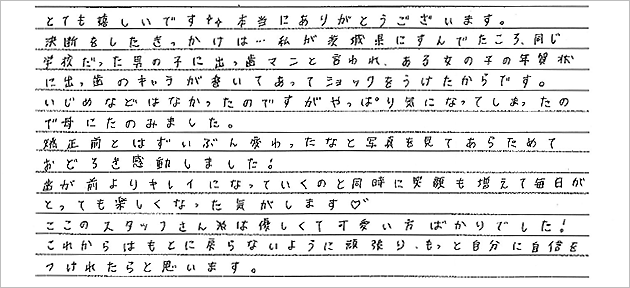 とても嬉しいです✨本当にありがとうございます。
決断をしたきっかけは…私が茨城県にすんでたころ、同じ
学校だった男の子に出っ歯マンと言われ、ある女の子の年賀状
に出っ歯のキャラが書いてあってショックをうけたからです。
いじめなどはなかったのですがやっぱり気になってしまったの
で母にたのみました。
矯正前とはずいぶん変わったなと写真を見てあらためて
おどろき感動しました!
歯が前よりキレイになっていくのと同時に笑顔も増えて毎日が
とっても楽しくなった気がします♡♡
ここのスタッフさん達は優しくて可愛い方ばかりでした!
これからはもとに戻らないように頑張り、もっと自分に自信を
つけれたらと思います。